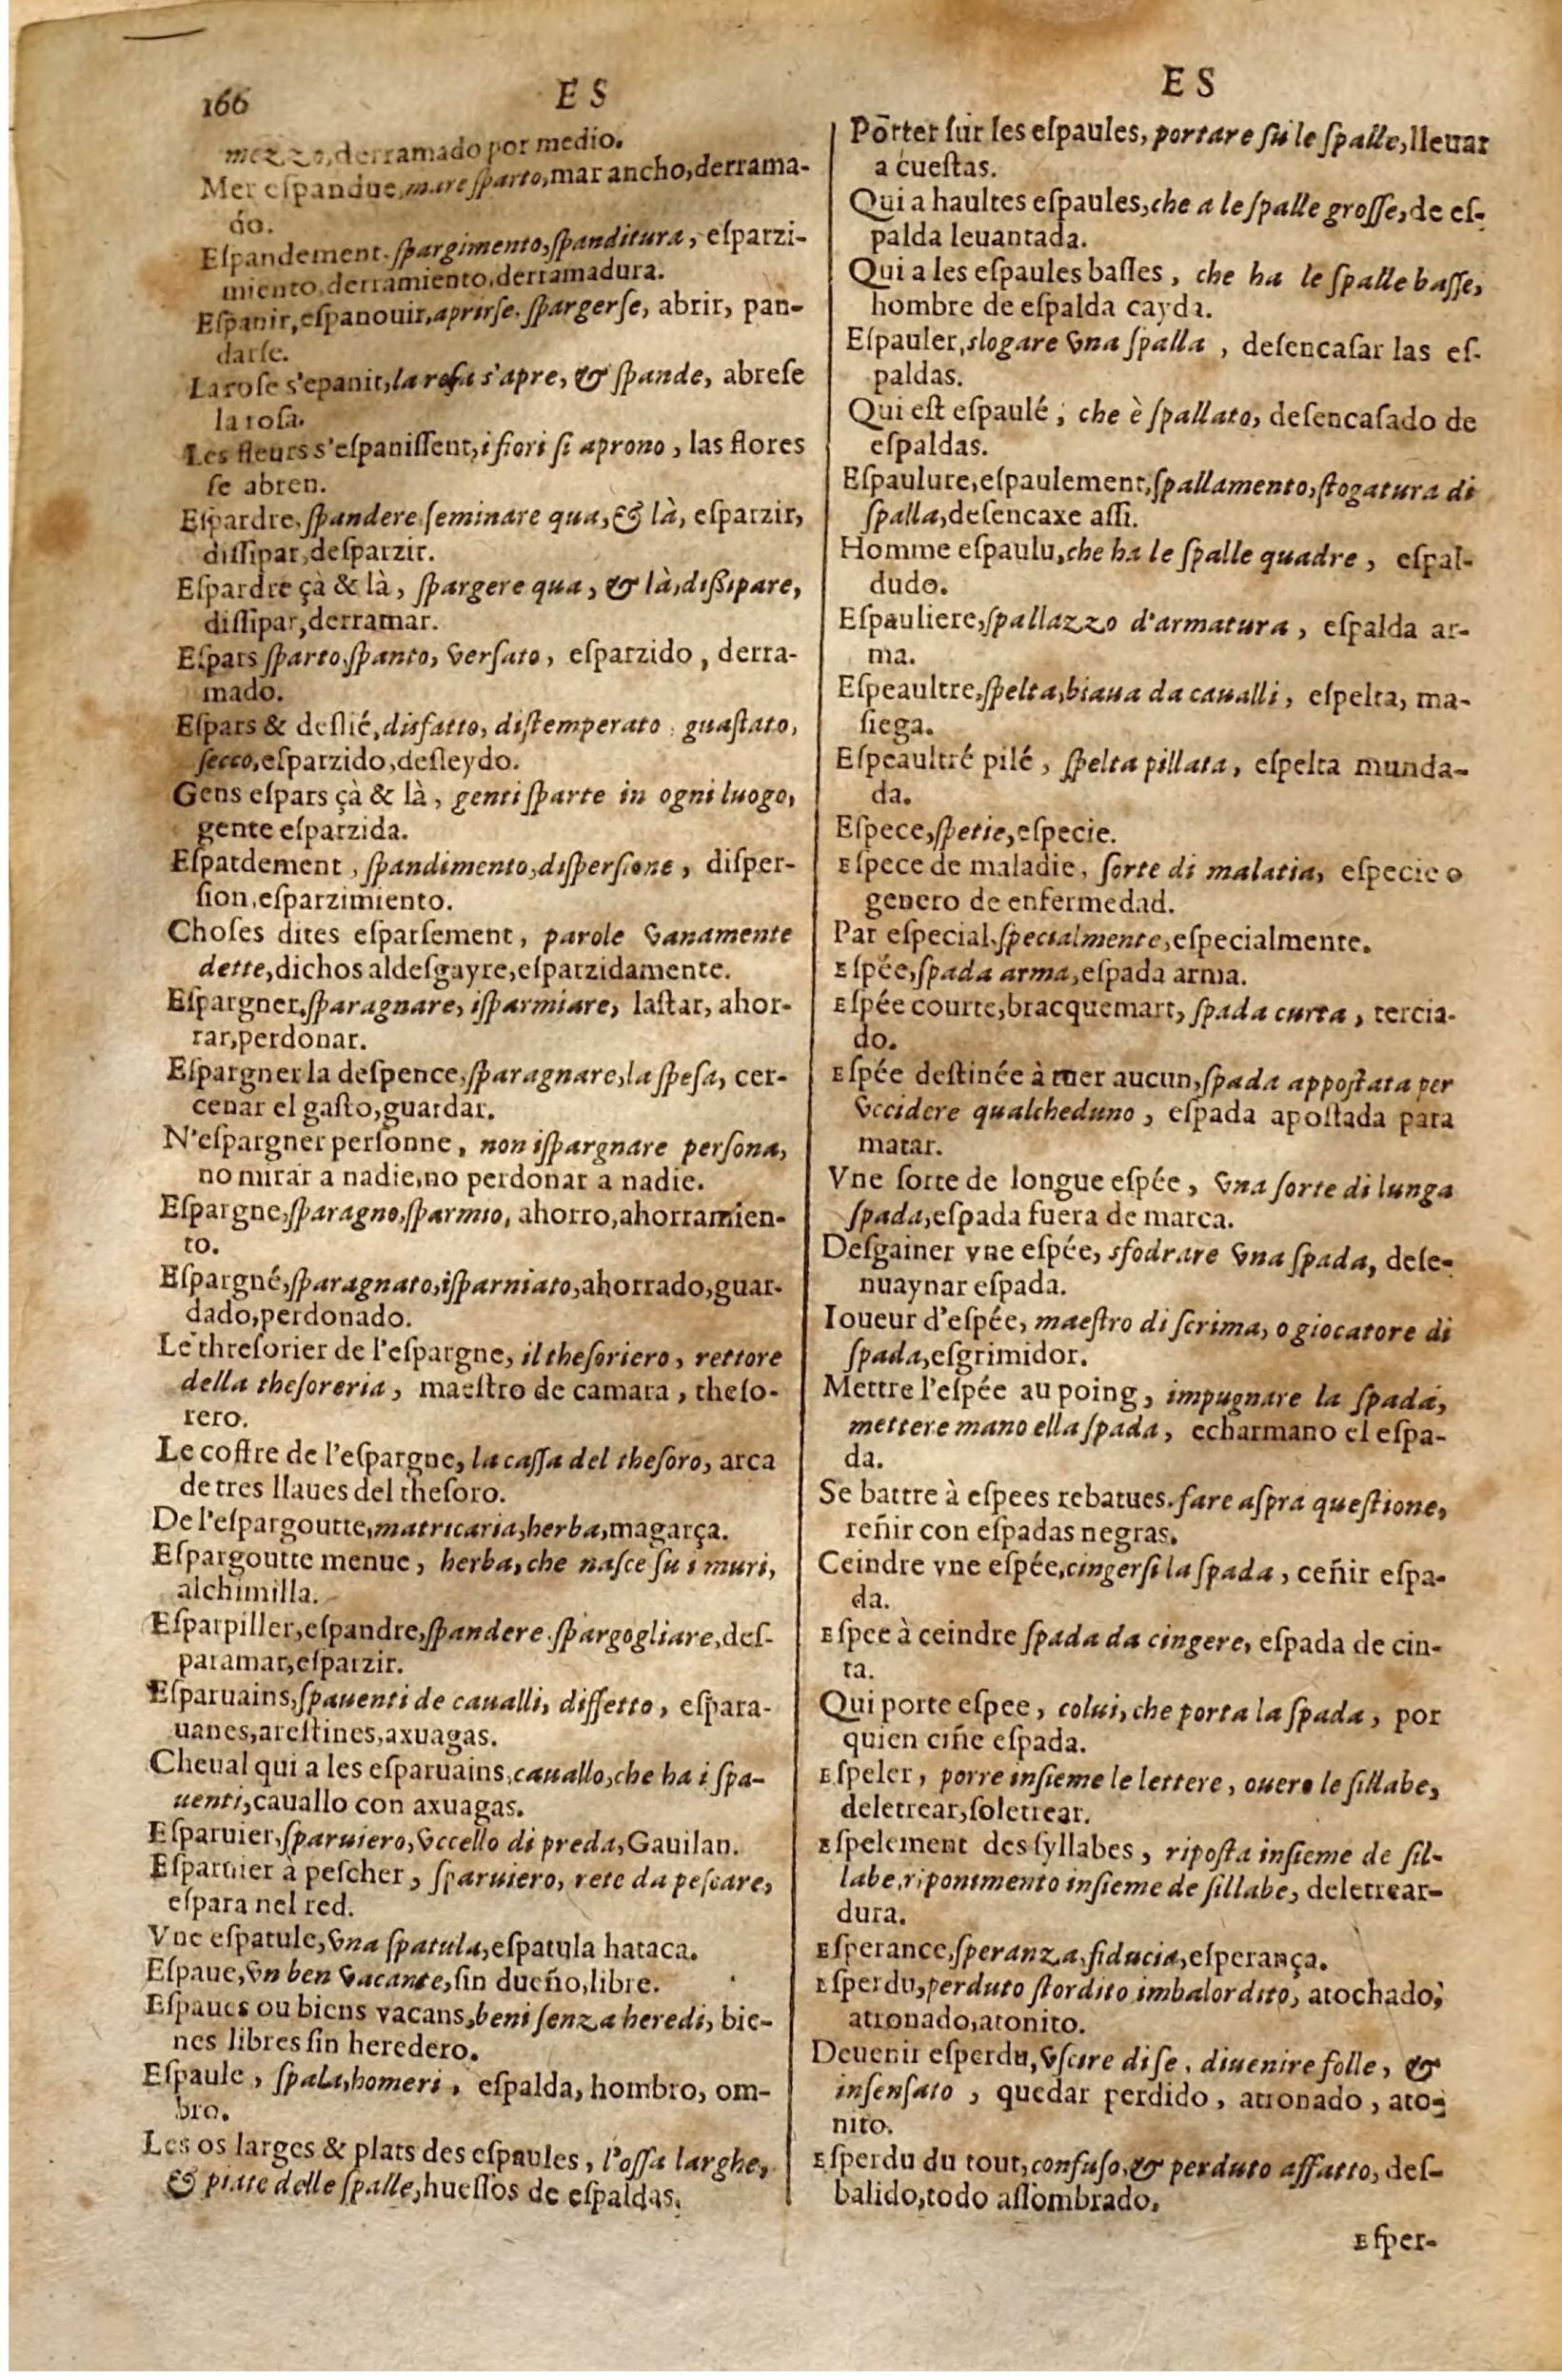 166
ES
mezzo, derramado por medio.
Mer eſpandue, mare ſparto, mar ancho, derrama-
do.
Eſpandement. ſpargimento, ſpanditura, eſparzi-
miento, derramiento, derramadura.
Eſpanir, eſpanouir, aprirſe. ſpargerſe, abrir, pan-
darſe.
La roſe s'epanit, la roſa s'apre, & ſpande, abreſe
la roſa.
Les fleurs s'eſpaniſſent, i fiori ſi aprono, las flores
ſe abren.
Eſpardre, ſpandere, ſeminare qua, & là, eſparzir,
diſſipar, deſparzir.
Eſpardre çà & là, ſpargere qua, & là, diſsipare,
diſſipar, derramar.
Eſpars ſparto, ſpanto, verſato, eſparzido, derra-
mado.
Eſpars & deſlié, disfatto, diſtemperato, guaſtato,
ſecco, eſparzido, deſleydo.
Gens eſpars çà & là, genti ſparte in ogni luogo,
gente eſparzida.
Eſpardement, ſpandimento, diſperſione, diſper-
ſion, eſparzimiento.
Choſes dites eſparſement, parole vanamente
dette, dichos aldeſgayre, eſparzidamente.
Eſpargner, ſparagnare, iſparmiare, laſtar, ahor-
rar, perdonar.
Eſpargner la deſpence, ſparagnare, la ſpeſa, cer-
cenar el gaſto, guardar.
N'eſpargner perſonne, non iſpargnare perſona,
no mirar a nadie, no perdonar a nadie.
Eſpargne, ſparagno, ſparmio, ahorro, ahorramien-
to.
Eſpargné, ſparagnato, iſparniato, ahorrado, guar-
dado, perdonado.
Le threſorier de l'eſpargne, il theſoriero, rettore
della theſoreria, maeſtro de camara, theſo-
rero.
Le coffre de l'eſpargne, la caſſa del theſoro, arca
de tres llaues del theſoro.
De l'eſpargoutte, matricaria, herba, magarça.
Eſpargoutte menue, herba, che naſce ſu i muri,
alchimilla.
Eſparpiller, eſpandre, ſpandere. ſpargogliare, deſ-
paramar, eſparzir.
Eſparuains, ſpauenti de caualli, diffetto, eſpara-
uanes, areſtines, axuagas.
Cheual qui a les eſparuains, cauallo, che ha i ſpa-
uenti, cauallo con axuagas.
Eſparuier, ſparuiero, vccello di preda, Gauilan.
Eſparuier à peſcher, ſparuiero, rete da peſcare,
eſpara nel red.
Vne eſpatule, vna ſpatula, eſpatula hataca.
Eſpaue, vn ben vacante, ſin dueño, libre.
Eſpaues ou biens vacans, beni ſenza heredi, bie-
nes libres ſin heredero.
Eſpaule, ſpala, homeri, eſpalda, hombro, om-
bro.
Les os larges & plats des eſpaules, l'oſſa larghe,
& piate delle ſpalle, hueſſos de eſpaldas.
ES
Porter ſur les eſpaules, portare ſu le ſpalle, lleuar
a cueſtas.
Qui a haultes eſpaules, che a le ſpalle groſſe, de eſ-
palda leuantada.
Qui a les eſpaules baſſes, che ha le ſpalle baſſe,
hombre de eſpalda cayda.
Eſpauler, slogare vna ſpalla, deſencaſar las eſ-
paldas.
Qui eſt eſpaulé, che è ſpallato, deſencaſado de
eſpaldas.
Eſpaulure, eſpaulement, ſpallamento, ſtogatura di
ſpalla, deſencaxe aſſi.
Homme eſpaulu, che ha le ſpalle quadre, eſpal-
dudo.
Eſpauliere, ſpallazzo d'armatura, eſpalda ar-
ma.
Eſpeaultre, ſpelta, biaua da caualli, eſpelta, ma-
ſiega.
Eſpeaultré pilé, ſpelta pillata, eſpelta munda-
da.
Eſpece, ſpetie, eſpecie.
Eſpece de maladie, ſorte di malatia, eſpecie o
genero de enfermedad.
Par eſpecial, ſpecialmente, eſpecialmente.
Eſpée, ſpada arma, eſpada arma.
Eſpée courte, bracquemart, ſpada curta, tercia-
do.
Eſpée deſtinée à tuer aucun, ſpada appoſtata per
vccidere qualcheduno, eſpada apoſtada para
matar.
Vne ſorte de longue eſpée, vna ſorte di lunga
ſpada, eſpada fuera de marca.
Deſgainer vne eſpée, sfodrare vna ſpada, deſe-
nuaynar eſpada.
Ioueur d'eſpée, maeſtro di ſcrima, o giocatore di
ſpada, eſgrimidor.
Mettre l'eſpée au poing, impugnare la ſpada,
mettere mano ella ſpada, echarmano el eſpa-
da.
Se battre à eſpees rebatues. fare aſpra queſtione,
reñir con eſpadas negras.
Ceindre vne eſpée, cingerſi la ſpada, ceñir eſpa-
da.
Eſpee à ceindre ſpada da cingere, eſpada de cin-
ta.
Qui porte eſpee, colui, che porta la ſpada, por
quien ciñe eſpada.
Eſpeler, porre inſieme le lettere, ouero le ſillabe,
deletrear, ſoletrear.
Eſpelement des ſyllabes, ripoſta inſieme de ſil-
labe, riponimento inſieme de ſillabe, deletrear-
dura.
Eſperance, ſperanza, fiducia, eſperança.
Eſperdu, perduto ſtordito imbalordito, atochado,
atronado, atonito.
Deuenir eſperdu, vſcire di ſe, diuenire folle, &
inſenſato, quedar perdido, atronado, ato-
nito.
Eſperdu du tout, confuſo, & perduto affatto, deſ-
balido, todo aſſombrado.
Eſper-